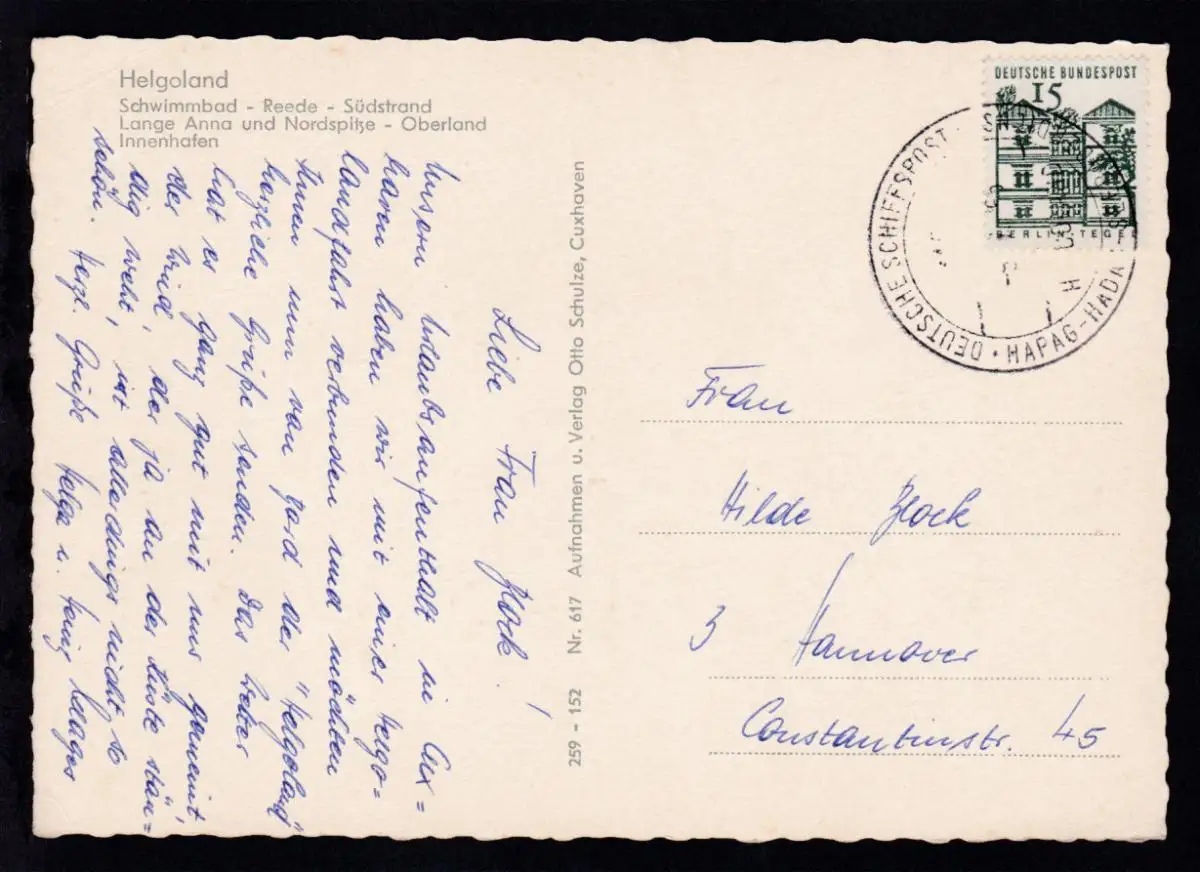 Helgoland
Schwimmbad - Reede - Südstrand
Lange Anna und Nordspitze - Oberland
Innenhafen
Liebe Frau Block!
Unseren Urlaubsaufenthalt in Cux=
haven haben wir mit einer Helgo=
landfahrt verbunden und möchten
Ihnen nun von Bord der "Helgoland"
herzliche Grüße senden. Das Wetter
hat es ganz gut mit uns gemeint
der Wind, der ja an der Küste stän=
dig weht, ist allerdings nicht so
schön. Herzl. Grüße Helga u.
259 - 152 Nr. 617 Aufnahmen u. Verlag Otto Schulze, Cuxhaven
DEUTSCHE BUNDESPOST
15
BERLIN-TEGEL
DEUTSCHE SCHIFFSPOST
HAPAG-HADAG
Frau
Hilde Block
3 Hannover
Constantinstr. 45